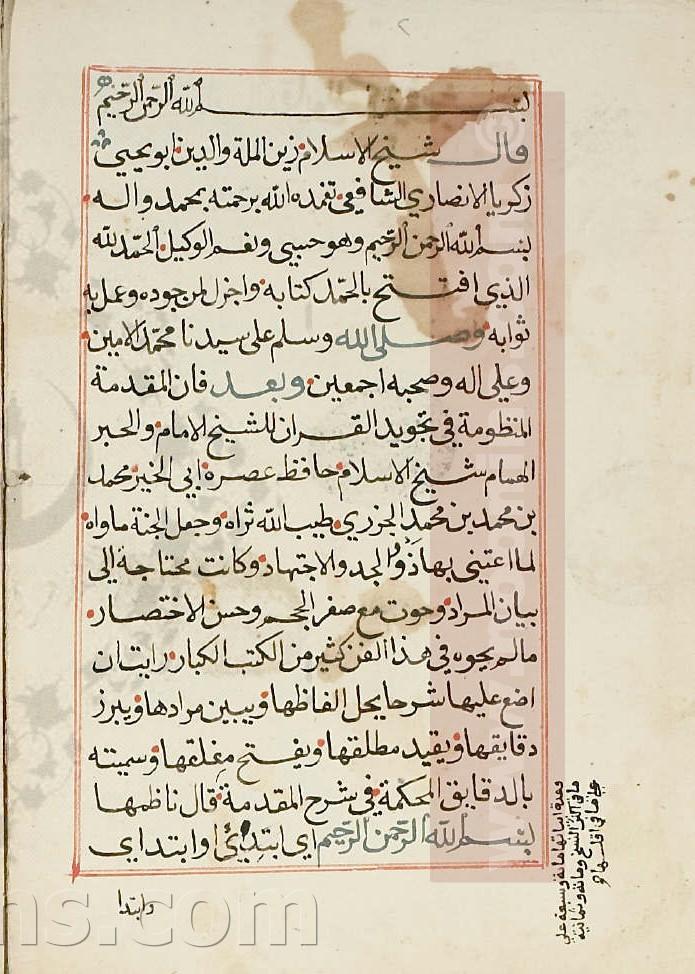 ٢
بسم الله الرحمن الرحيم
قال شيخ الاسلام زين الملة والدين ابو يحيي
زكريا الانصاري الشافعي تغمده الله برحمته بمحمد واله
بسم الله الرحمن الرحيم وهو حسبي ونعم الوكيل الحمد لله
الذي افتتح بالحمد كتابه واجزل لمن جوده وعمل به
ثوابه وصلى الله وسلم على سيدنا محمد الامين
وعلى اله وصحبه اجمعين وبعد فان المقدمة
المنظومة في تجويد القران للشيخ الامام والحبر
الهمام شيخ الاسلام حافظ عصره ابي الخير محمد
بن محمد بن محمد الجزري طيب الله ثراه وجعل الجنة ماواه
لما اعتني بها ذوو الجد والاجتهاد وكانت محتاجة الى
بيان المراد وحوت مع صغر الحجم وحسن الاختصار
مالم يحوه في هذا الفن كثير من الكتب الكبار رايت ان
اضع عليها شرحا يحل الفاظها ويبين مرادها ويبرز
دقايقها ويقيد مطلقها ويفتح مغلقها وسميته
بالدقايق المحكمة في شرح المقدمة قال ناظمها
بسم الله الرحمن الرحيم اي ابتدئ او ابتداي
وابتدا
وعدة ابياتها مائة وسبعة على
ما في اكثر النسخ ومائة وثمانية
على ما في اقلها
ns.com